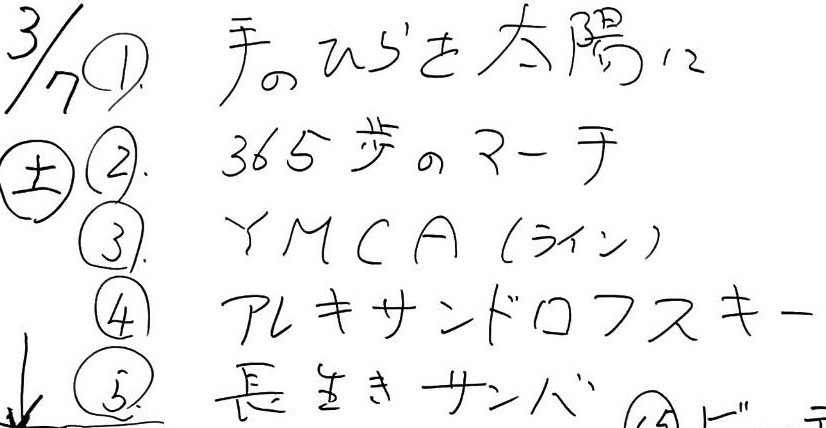 3/7 ① 手のひらを太陽に
㊏ ② 365歩のマーチ
③ YMCA (ライン)
④ アレキサンドロフスキー
⑤ 長生きサンバ